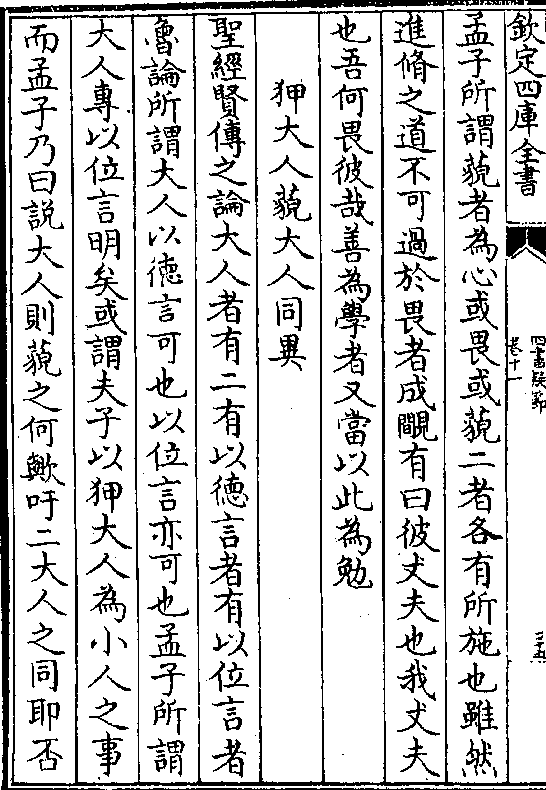 欽定四庫全書
四書疑節
卷十一
孟子所謂藐者為心或畏或藐二者各有所施也雖然
進脩之道不可過於畏者成覵有曰彼丈夫也我丈夫
也吾何畏彼哉善為學者又當以此為勉
狎大人藐大人同異
聖經賢傳之論大人者有二有以德言者有以位言者
魯論所謂大人以德言可也以位言亦可也孟子所謂
大人專以位言明矣或謂夫子以狎大人為小人之事
而孟子乃曰説大人則藐之何歟吁二大人之同耶否